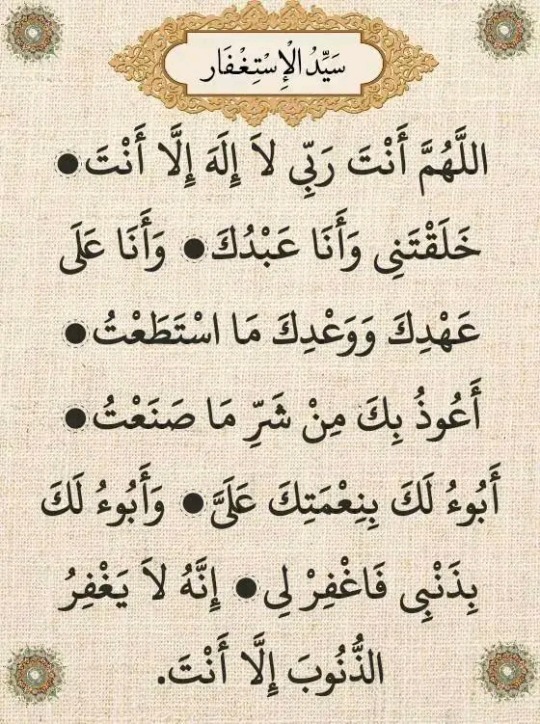 سَيِّدُ الْإِسْتِغْفَار
اللَّهُمَّ أَنْتَ رَبِّي لاَ إِلَهَ إِلَّا أَنْتَ ●
خَلَقْتَنِى وَأَنَا عَبْدُكَ ● وَأَنَا عَلَى
عَهْدِكَ وَوَعْدِكَ مَا اسْتَطَعْتُ ●
أَعُوذُ بِكَ مِنْ شَرِّ مَا صَنَعْتُ ●
أَبُوءُ لَكَ بِنِعْمَتِكَ عَلَىَّ ● وَأَبُوءُ لَكَ
بِذَنْبِى فَاغْفِرْ لِى ● إِنَّهُ لاَ يَغْفِرُ
الذُّنُوبَ إِلَّا أَنْتَ.